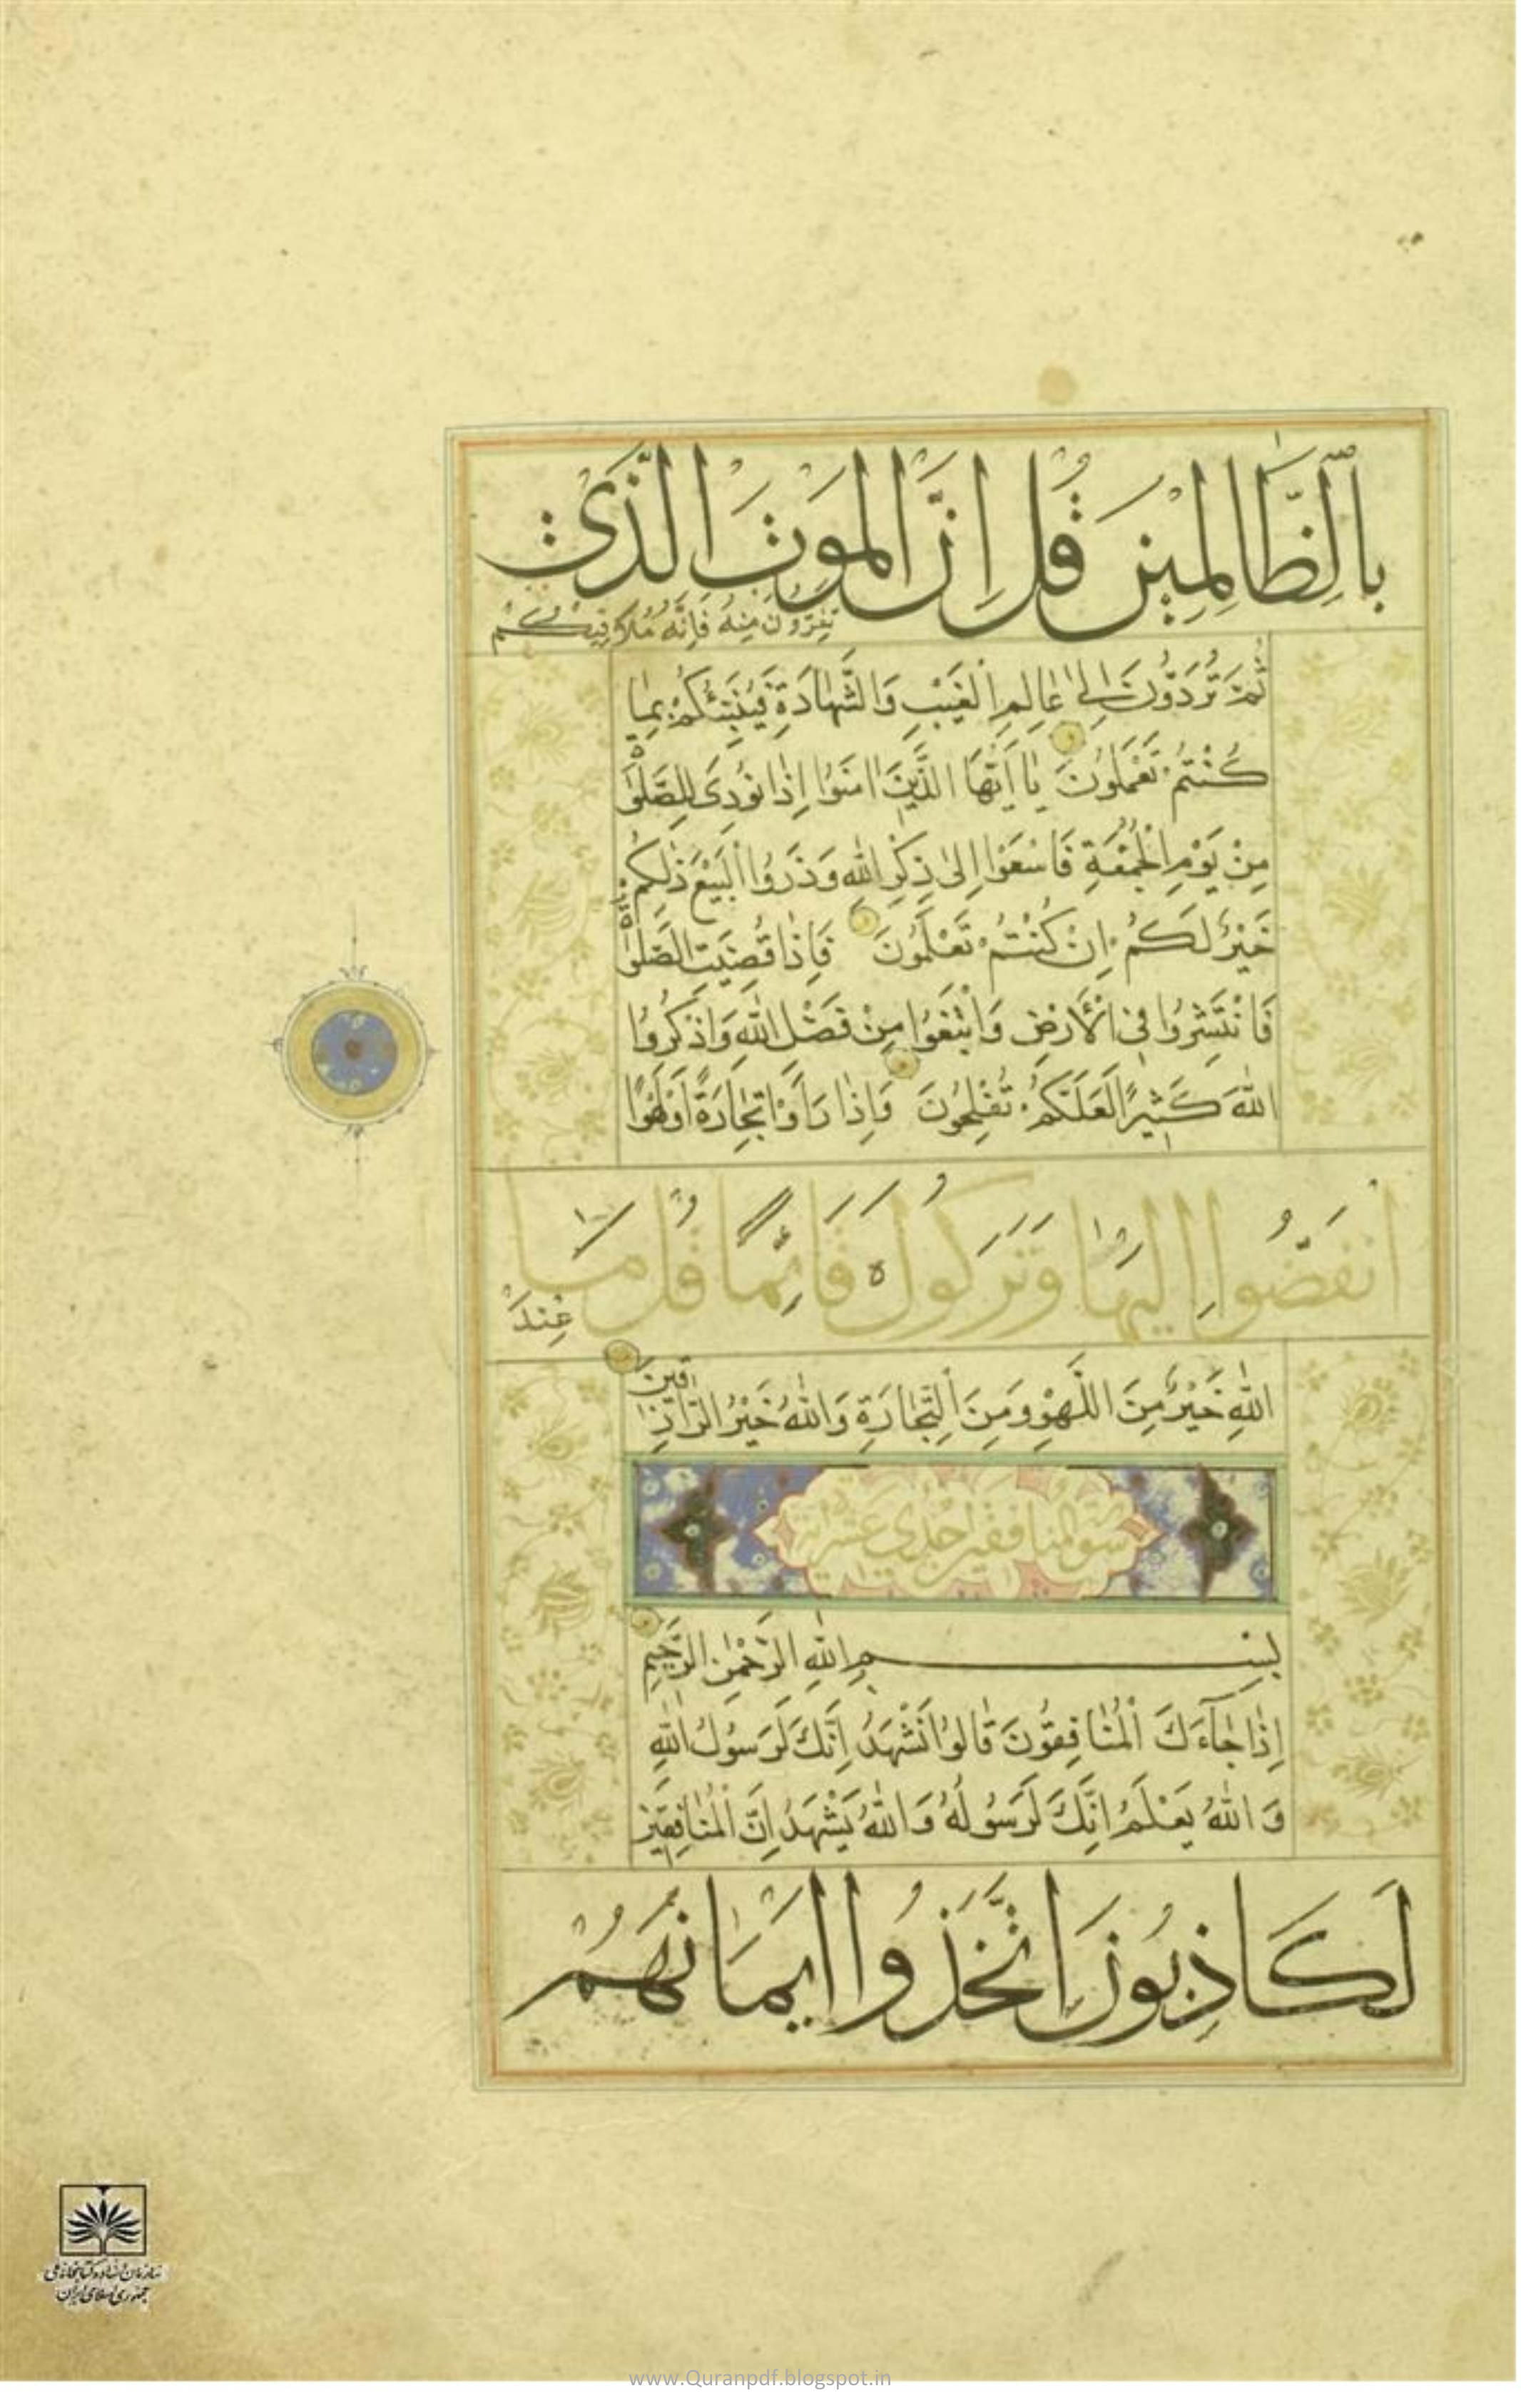 بِالظَّالِمِينَ قُلْ إِنَّ الْمَوْتَ الَّذِي
تَفِرُّونَ مِنْهُ فَإِنَّهُ مُلَاقِيكُمْ
ثُمَّ تُرَدُّونَ إِلَىٰ عَالِمِ الْغَيْبِ وَالشَّهَادَةِ فَيُنَبِّئُكُمْ بِمَا
كُنْتُمْ تَعْمَلُونَ يَا أَيُّهَا الَّذِينَ اٰمَنُوا إِذَا نُودِيَ لِلصَّلٰوةِ
مِنْ يَوْمِ الْجُمُعَةِ فَاسْعَوْا إِلىٰ ذِكْرِ اللّٰهِ وَذَرُوا الْبَيْعَ ذٰلِكُمْ
خَيْرٌ لَكُمْ إِنْ كُنْتُمْ تَعْلَمُونَ فَإِذَا قُضِيَتِ الصَّلٰوةُ
فَانْتَشِرُوا فِي الْأَرْضِ وَابْتَغُوا مِنْ فَضْلِ اللّٰهِ وَاذْكُرُوا
اللّٰهَ كَثِيرًا لَعَلَّكُمْ تُفْلِحُونَ وَإِذَا رَأَوْا تِجَارَةً أَوْ لَهْوًا
انْفَضُّوا إِلَيْهَا وَتَرَكُوكَ قَائِمًا قُلْ مَا
عِنْدَ
اللّٰهِ خَيْرٌ مِنَ اللَّهْوِ وَمِنَ التِّجَارَةِ وَاللّٰهُ خَيْرُ الرَّازِقِينَ
سورة المنافقين احدى عشر اية
بِسْمِ اللّٰهِ الرَّحْمٰنِ الرَّحِيمِ
إِذَا جَاءَكَ الْمُنَافِقُونَ قَالُوا نَشْهَدُ إِنَّكَ لَرَسُولُ اللّٰهِ
وَاللّٰهُ يَعْلَمُ إِنَّكَ لَرَسُولُهُ وَاللّٰهُ يَشْهَدُ إِنَّ الْمُنَافِقِينَ
لَكَاذِبُونَ اتَّخَذُوا أَيْمَانَهُمْ
سازمان اسناد و کتابخانه ملی
جمهوری اسلامی ایران
www.Quranpdf.blogspot.in